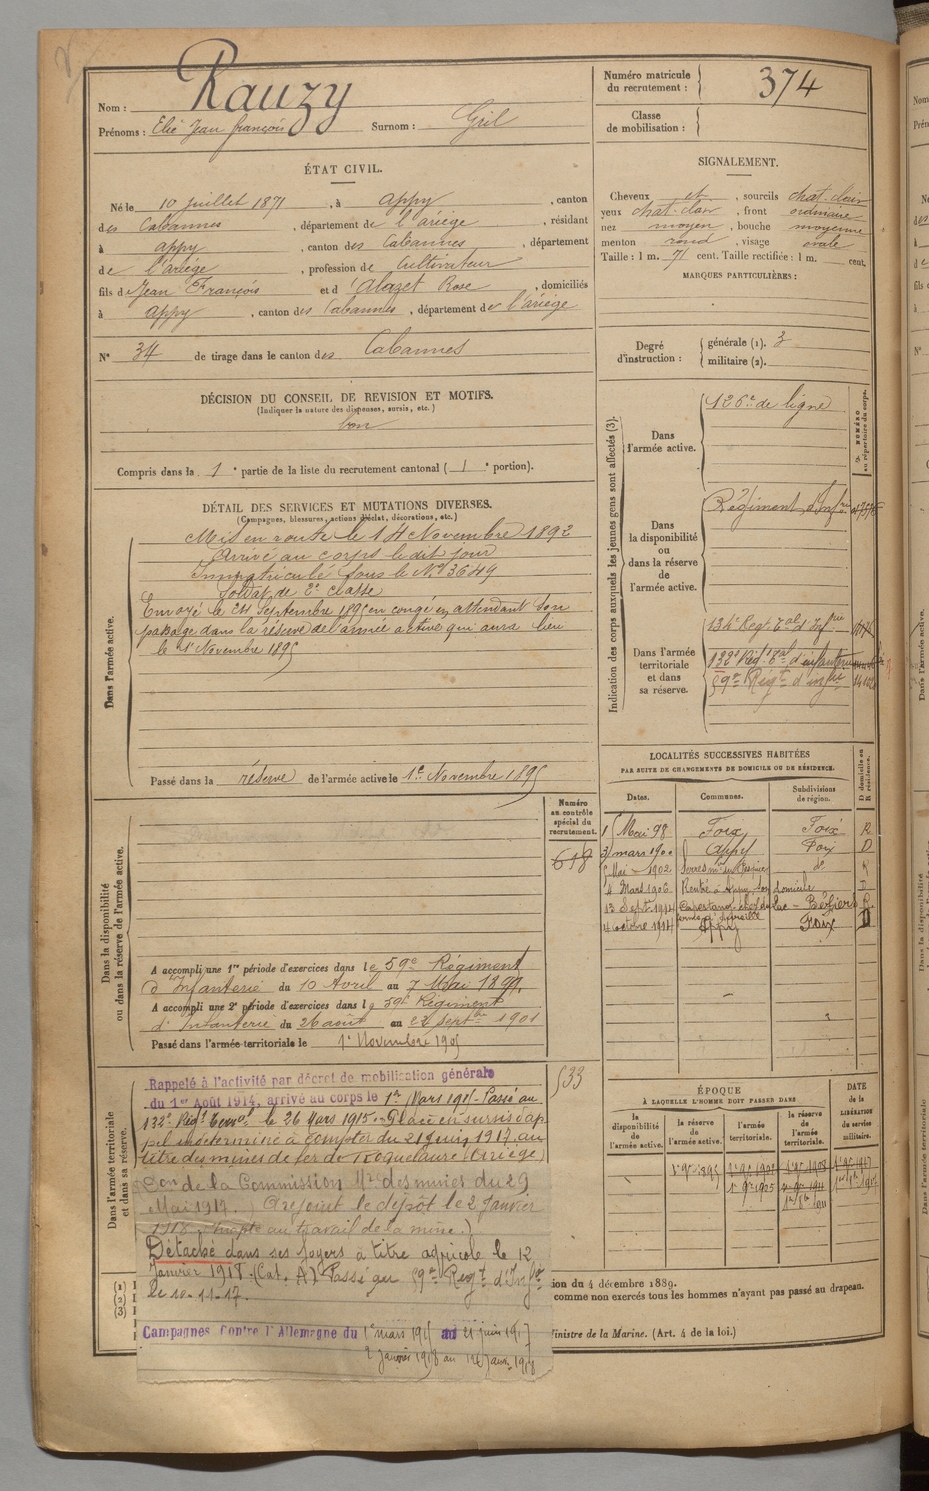 Nom : Rauzy
Prénoms : Elie Jean François Surnom : Gril
Numéro matricule du recrutement : 374
Classe de mobilisation :
ÉTAT CIVIL.
Né le 10 juillet 1871, à Appy, canton
des Cabannes, département de l'ariège, résidant
à appy, canton des Cabannes, département
de l'ariège, profession de Cultivateur
fils de Jean François et d'Alazet Rose, domiciliés
à appy, canton des Cabannes, département de l'ariège
N° 34 de tirage dans le canton des Cabannes
SIGNALEMENT.
Cheveux et, sourcils chat. clair
yeux chat. clair, front ordinaire
nez moyen, bouche moyenne
menton rond, visage ovale
Taille : 1 m. 71 cent. Taille rectifiée : 1 m. cent.
MARQUES PARTICULIÈRES :
Degré d'instruction : générale (1). 3
militaire (2).
DÉCISION DU CONSEIL DE REVISION ET MOTIFS.
(Indiquer la nature des dispenses, sursis, etc.)
bon
Compris dans la 1e partie de la liste du recrutement cantonal ( 1e portion).
DÉTAIL DES SERVICES ET MUTATIONS DIVERSES.
(Campagnes, blessures, actions d'éclat, décorations, etc.)
Dans l'armée active.
Mis en route le 14 Novembre 1892
Arrivé au corps le dit jour
Immatriculé sous le N° 3649
Soldat de 2e classe
Envoyé le 24 Septembre 1895 en congé en attendant son
passage dans la réserve de l'armée active qui aura lieu
le 1er Novembre 1895
Passé dans la réserve de l'armée active le 1er Novembre 1895
Indication des corps auxquels les jeunes gens sont affectés (3).
NUMÉRO au répertoire du corps.
Dans l'armée active.
126e de ligne
Dans la disponibilité ou dans la réserve de l'armée active.
Régiment d'Infrie
Dans l'armée territoriale et dans sa réserve.
134e Regt Tal d'Infrie
132e Rég. Tal d'infanterie
59e Régt d'infrie
LOCALITÉS SUCCESSIVES HABITÉES
PAR SUITE DE CHANGEMENTS DE DOMICILE OU DE RÉSIDENCE.
Dates. Communes. Subdivisions de région. D domicile ou R résidence.
15 Mai 98 Foix Foix R
3 mars 1900 Appy Foix D
Mai 1902 d° R
4 Mars 1906 Rentré à Appy son domicile D
13 Sept 1914 Capestang Béziers R
4 octobre 1914 Appy Foix D
Dans la disponibilité ou dans la réserve de l'armée active.
Numéro au contrôle spécial du recrutement.
618
A accompli une 1re période d'exercices dans le 59e Régiment
d'Infanterie du 10 Avril au 7 Mai 1899.
A accompli une 2e période d'exercices dans le 59e Régiment
d'Infanterie du 26 août au 22 Septbre 1901
Passé dans l'armée territoriale le 1er Novembre 1905
533
Dans l'armée territoriale et dans sa réserve.
Rappelé à l'activité par décret de mobilisation générale
du 1er Août 1914, arrivé au corps le 1er Mars 1915 - Passé au
132e Régt Terral le 26 Mars 1915. Placé en sursis d'ap
pel indéterminé à compter du 21 Juin 1917, au
titre des mines de fer de Roquelaure (Ariège)
Con de la Commission Mre des mines du 29
Mai 1917. ) (rejoint le dépôt le 2 Janvier
1918. Inapte au travail de la mine.)
Détaché dans ses foyers à titre agricole le 12
Janvier 1918. (Cat. A). Passé au 59e Régt d'Infrie
le 10-11-17.
Campagnes Contre l'Allemagne du 1er mars 1915 au 21 juin 1917
2 Janvier 1918 au 12 Janv. 1918
ÉPOQUE
À LAQUELLE L'HOMME DOIT PASSER DANS
la disponibilité de l'armée active. la réserve de l'armée active. l'armée territoriale. la réserve de l'armée territoriale. DATE de la LIBÉRATION du service militaire.
1er 9e 1895
1er 9e 1905
(1)
(2)
(3)
ion du 4 décembre 1889.
comme non exercés tous les hommes n'ayant pas passé au drapeau.
Ministre de la Marine. (Art. 4 de la loi.)